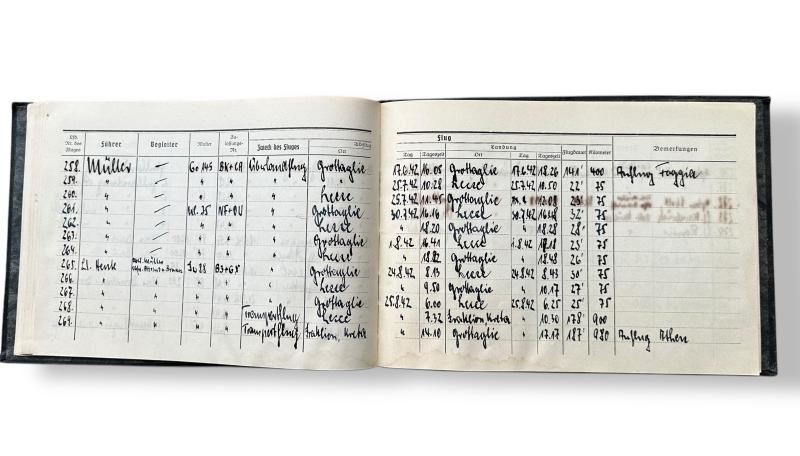 Lfd. Nr. des Fluges Führer Begleiter Muster Zu-lassungs-Nr. Zweck des Fluges Ort
Flug
Landung
Tag Tageszeit Ort Tag Tageszeit Flugdauer Kilometer Bemerkungen
258. Müller — Go 145 BK+CA Überlandflug Grottaglie 17.6.42 16.05 Grottaglie 17.6.42 18.26 141' 400 Aufflug Foggia
259. " — " " " " 25.7.42 10.28 Lecce 25.7.42 10.50 22' 75
260. " — " " " Lecce 25.7.42 11.45 Grottaglie 12.08 75
261. " — W. 35 NF+OU " Grottaglie 30.7.42 16.16 Lecce 30.7.42 32' 75
262. " — " " " Lecce " 18.20 Grottaglie " 18.28 28' 75
263. " — " " " Grottaglie 1.8.42 16.41 Lecce 1.8.42 25' 75
264. " — " " " Lecce " 18.22 Grottaglie " 18.48 26' 75
265. Lt. Henk Ju 88 B3+GS " Grottaglie 24.8.42 8.13 Lecce 24.8.42 8.43 30' 75
266. " " " " " Lecce " 9.50 Grottaglie " 10.17 27' 75
267. " " " " " Grottaglie 25.8.42 6.00 Lecce 25.8.42 6.25 25' 75
268. " " " " Transportflug Lecce " 7.32 Iraklion, Kreta " 10.30 178' 900
269. " " " " Transportflug Iraklion, Kreta " 14.10 Grottaglie " 17.17 187' 980 Aufflug Athen